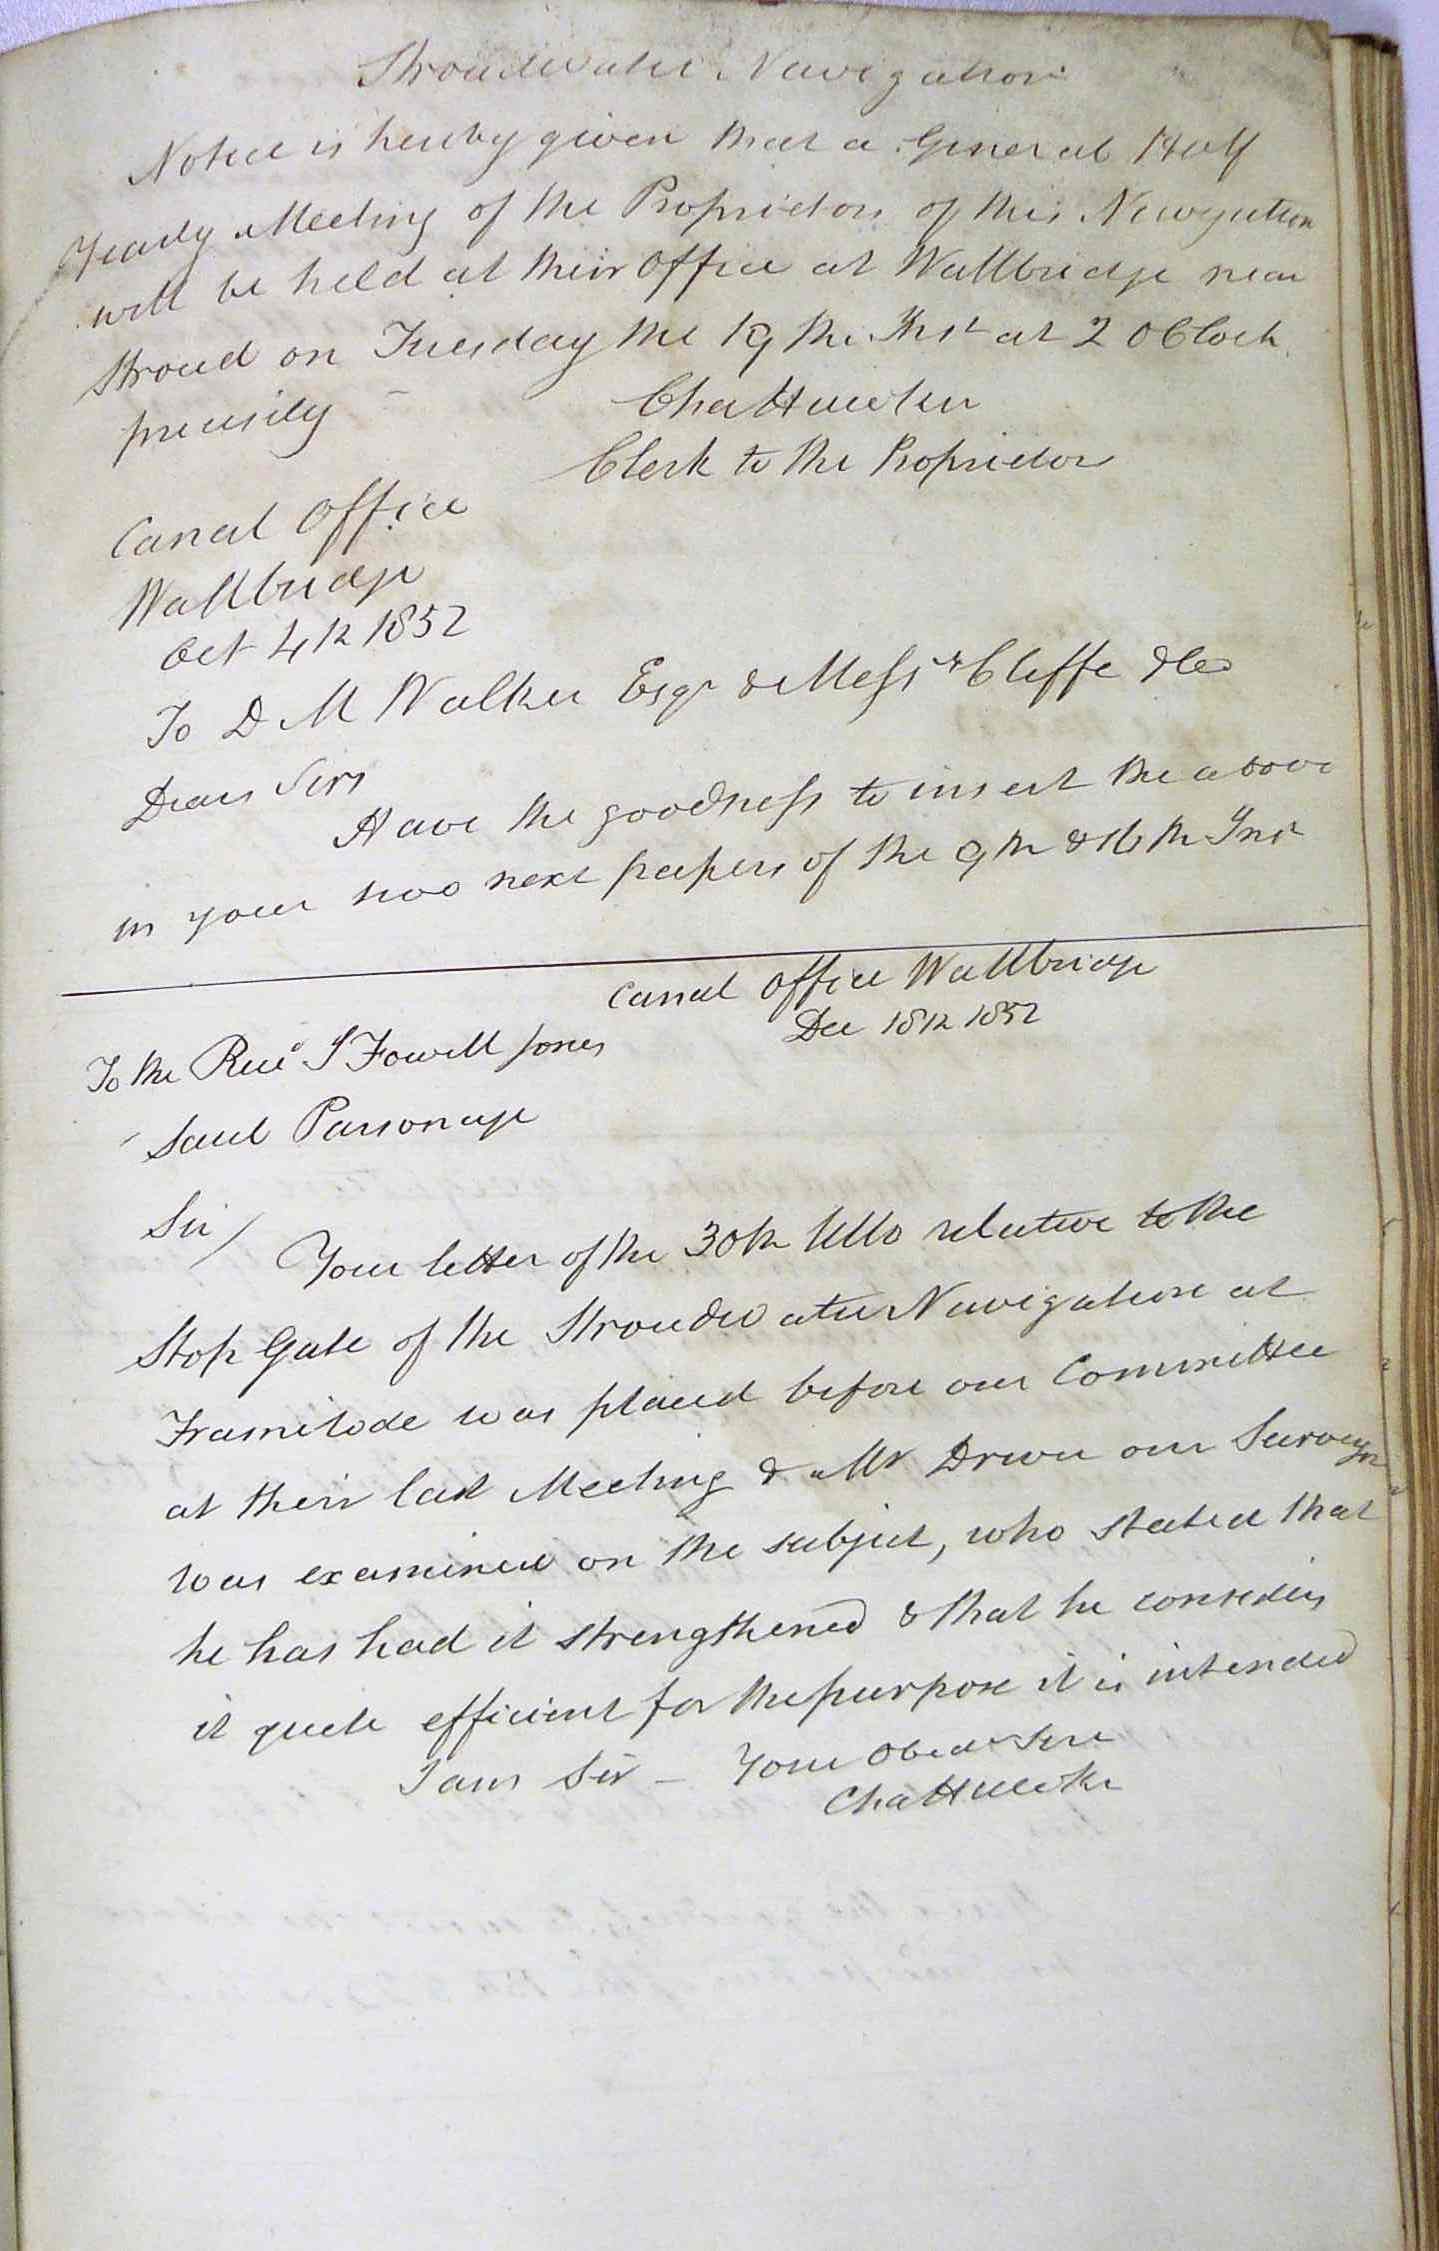 Stroudwater Navigation
Notice is hereby given that a General Half
Yearly Meeting of the Proprietors of this Navigation
will be held at their Office at Wallbridge near
Stroud on Tuesday the 19th Inst at 2 OClock
precisely
Cha Hawker
Clerk to the Proprietors
Canal Office
Wallbridge
Oct 4th 1852
To D M Walker Esqr & Messrs Cliffe & Co
Dear Sirs
Have the goodness to insert the above
in your two next papers of the 9th & 16th Inst
Canal Office Wallbridge
Dec 18th 1852
To the Revd J Fowell Jones
Saul Parsonage
Sir/ Your letter of the 30th Ullo relative to the
Stop Gate of the Stroudwater Navigation at
Framilode was placed before our Committee
at their last Meeting & Mr Drew our Surveyor
was examined on the subject, who stated that
he has had it strengthened & that he considers
it quite efficient for the purpose it is intended
I am Sir - Your Obedt Sert
Cha Hawker